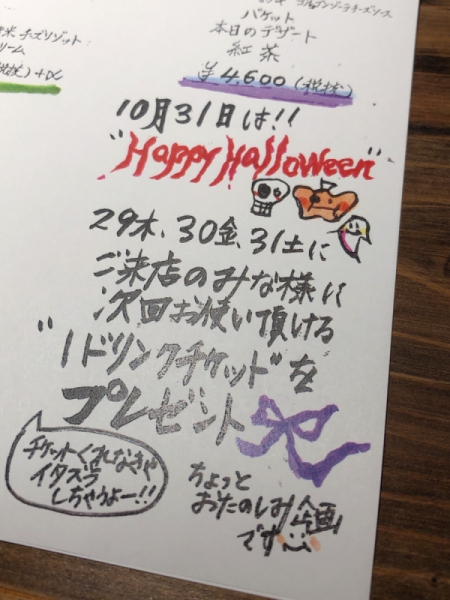 チーズソース
バケット
本日のデザート
紅茶
¥4,600(税抜)
米チーズリゾット
10月31日は!!
"Happy Halloween"
29木、30金、31土に
ご来店のみな様に
次回お使い頂ける
"1ドリンクチケット"を
プレゼント
チケットくれなきゃ
イタズラ
しちゃうよー!!
ちょっと
おたのしみ企画
です